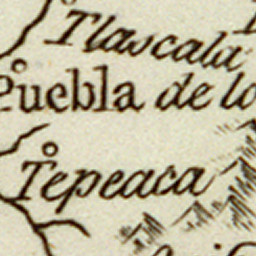 Tlascala
Puebla de lo
Tepeaca